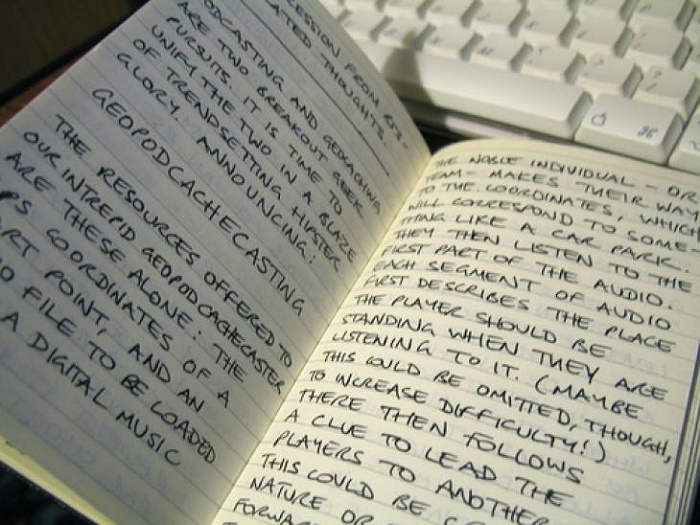 CESSION FROM
ATED THOUGHTS.
PODCASTING AND GEOCACHING
ARE TWO BREAKOUT GEEK
PURSUITS. IT IS TIME TO
UNIFY THE TWO IN A BLAZE
OF TRENDSETTING HIPSTER
GLORY. ANNOUNCING:
GEOPODCACHECASTING
THE RESOURCES OFFERED TO
OUR INTREPID GEOPODCACHECASTER
ARE THESE ALONE: THE
PS COORDINATES OF A
ART POINT, AND AN
IO FILE TO BE LOADED
A DIGITAL MUSIC
THE NOBLE INDIVIDUAL - OR
TEAM - MAKES THEIR WAY
TO THE COORDINATES, WHICH
WILL CORRESPOND TO SOME-
THING LIKE A CAR PARK.
THEY THEN LISTEN TO THE
FIRST PART OF THE AUDIO.
EACH SEGMENT OF AUDIO
FIRST DESCRIBES THE PLACE
THE PLAYER SHOULD BE
STANDING WHEN THEY ARE
LISTENING TO IT. (MAYBE
THIS COULD BE OMITTED, THOUGH,
TO INCREASE DIFFICULTY!)
THERE THEN FOLLOWS
A CLUE TO LEAD THE
PLAYERS TO ANOTHER
THIS COULD BE
NATURE OR
FORWA